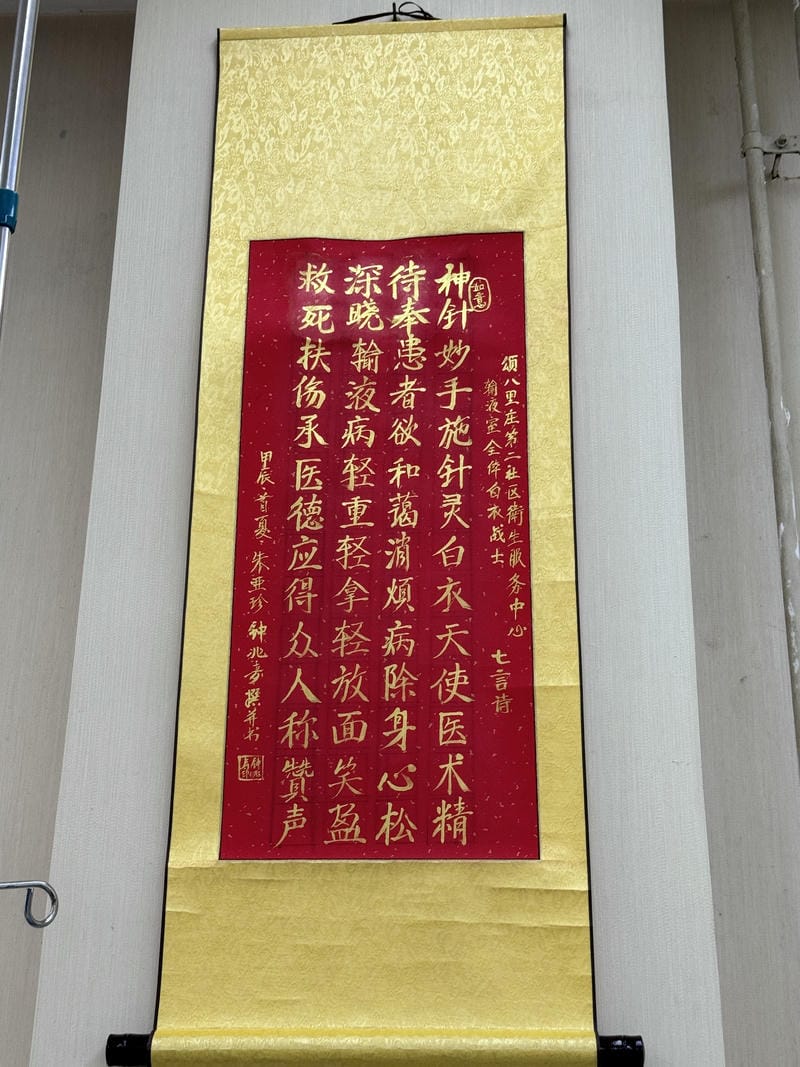 如意
颂八里庄第二社区衛生服务中心
输液室全体白衣战士
七言诗
神针妙手施针灵白衣天使医术精
待奉患者欲和蔼消烦病除身心松
深晓输液病轻重轻拿轻放面笑盈
救死扶伤承医德应得众人称赞声
甲辰·首夏·朱亚珍 钟兆 撰并书